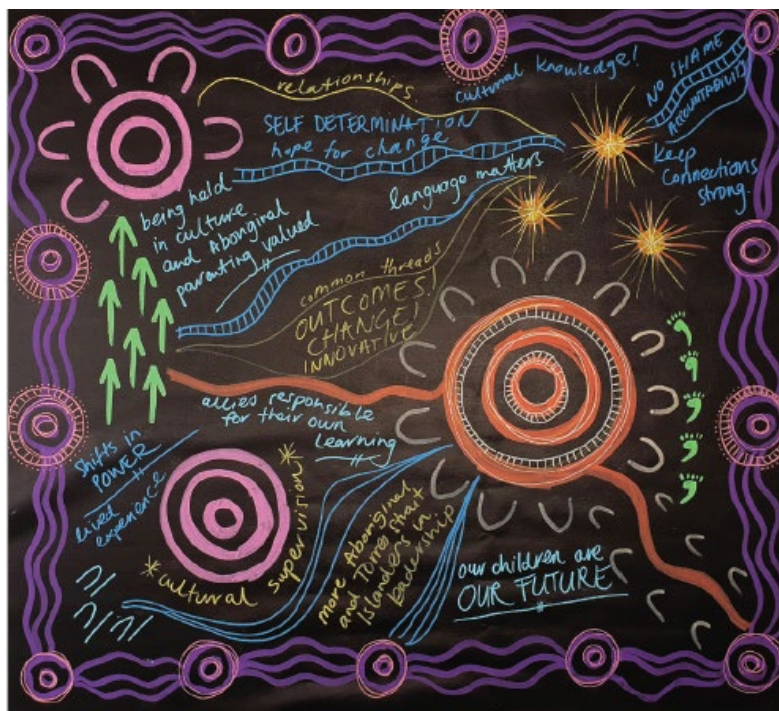 relationships.
cultural knowledge!
NO SHAME
ACCOUNTABILITY
SELF DETERMINATION
hope for change
keep
connections
strong.
language matters
being held
in culture
and Aboriginal
parenting valued
common threads
OUTCOMES!
CHANGE!
INNOVATIVE
allies responsible
for their own
learning
Shifts in
POWER
lived
experience
*cultural supervision*
more Aboriginal
and Torres Strait
Islanders in
leadership
our children are
OUR FUTURE